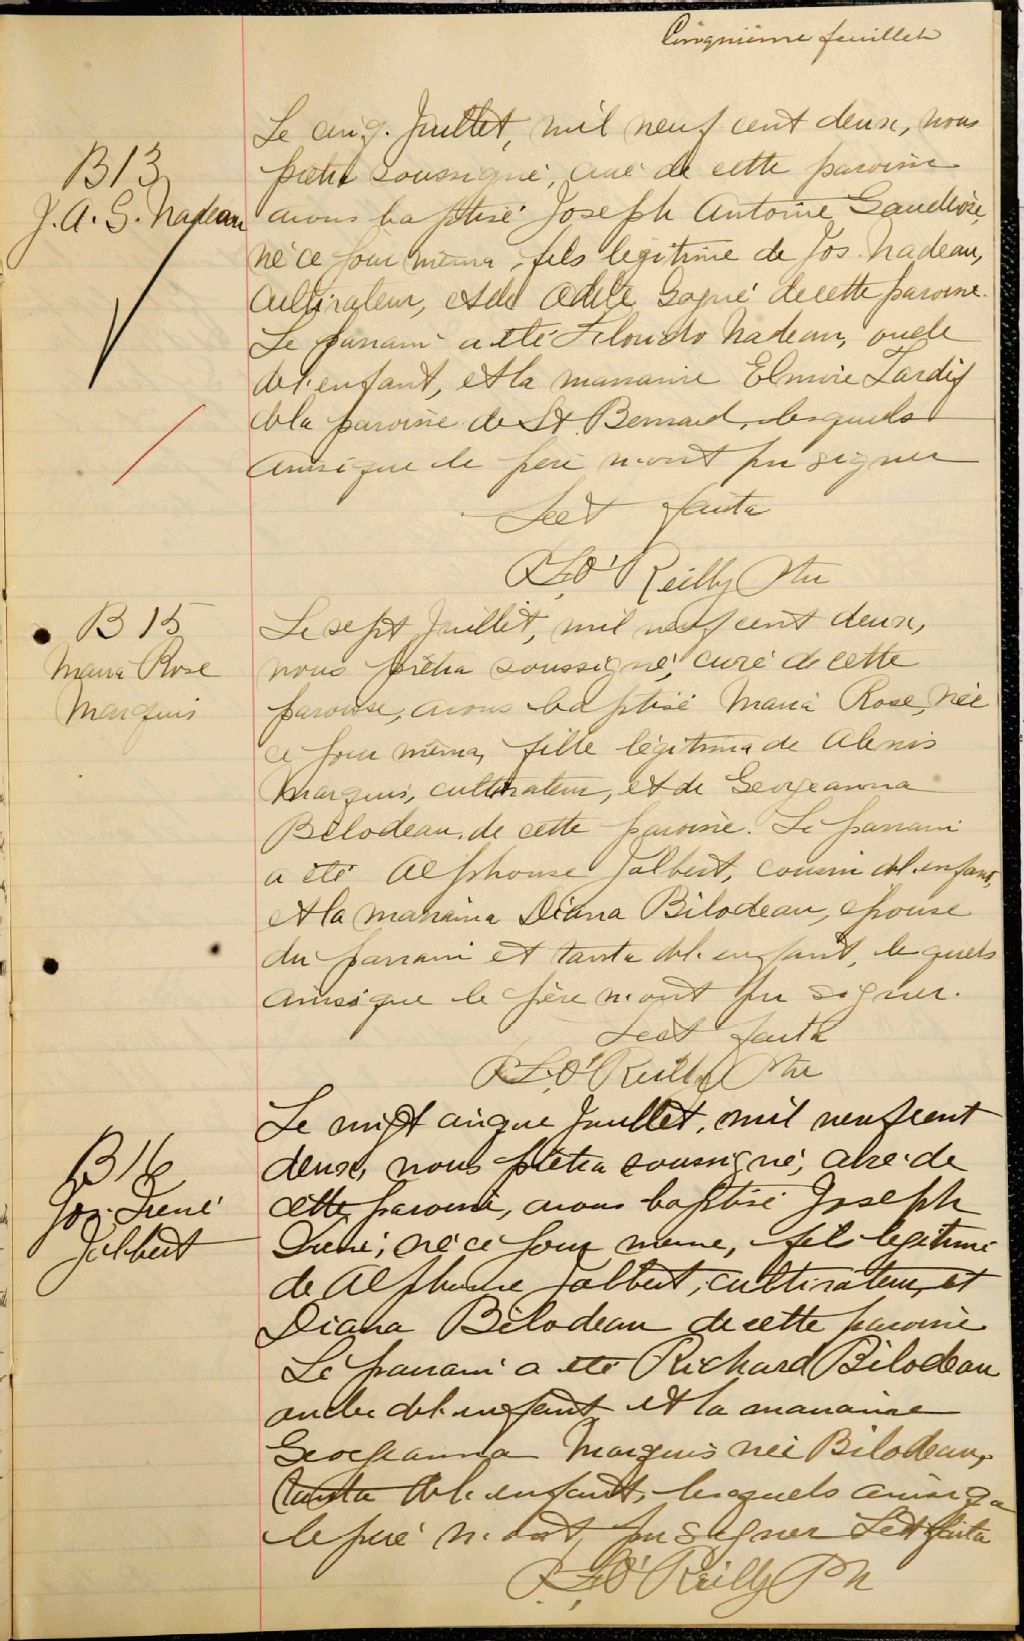 Cinquième feuillet
B13
J. A. G. Nadeau
Le cinq Juillet, mil neuf cent deux, nous
prêtre soussigné, curé de cette paroisse
avons baptisé Joseph Antoine Gaudiose,
né ce jour même, fils légitime de Jos. Nadeau,
cultivateur, et de Odile Gagné de cette paroisse.
Le parrain a été Nadeau, oncle
de l'enfant, et la marraine Elmire Tardif
de la paroisse de St. Bernard, lesquels
ainsi que le père n'ont pu signer
Lect faite
O'Reilly Ptre
B 15
Maria Rose
Marquis
Le sept Juillet, mil neuf cent deux,
nous prêtre soussigné, curé de cette
paroisse, avons baptisé Maria Rose, née
ce jour même, fille légitime de Alexis
Marquis, cultivateur, et de Georgeanna
Bilodeau, de cette paroisse. Le parrain
a été Alphonse Jalbert, cousin de l'enfant,
et la marraine Diana Bilodeau, épouse
du parrain et tante de l'enfant, lesquels
ainsi que le père n'ont pu signer.
Lect faite
O'Reilly Ptre
B 16
Jos. Irené
Jalbert
Le vingt cinque Juillet, mil neuf cent
deux, nous prêtre soussigné, curé de
cette paroisse, avons baptisé Joseph
Irené, né ce jour même, fils légitime
de Alphonse Jalbert, cultivateur, et
Diana Bilodeau de cette paroisse
Le parrain a été Richard Bilodeau
oncle de l'enfant et la marraine
Georgeanna Marquis née Bilodeau,
tante de l'enfant, lesquels ainsi que
le père n'ont pu signer Lect faite
O'Reilly Ptr